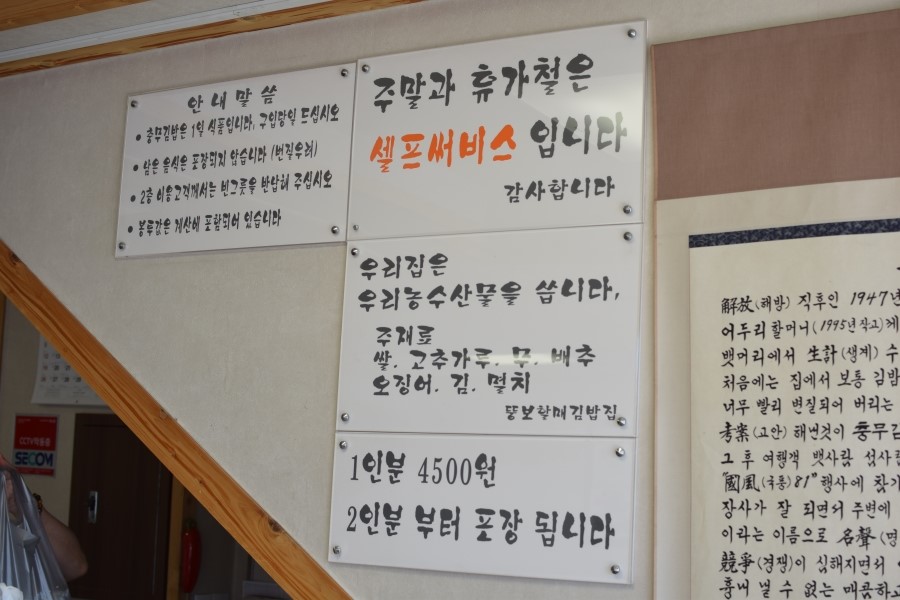 안내말씀
• 충무김밥은 1일 식품입니다, 구입당일 드십시오
• 남은 음식은 포장되지 않습니다 (변질우려)
• 2층 이용고객께서는 빈그릇을 반납해 주십시오
• 봉투값은 계산에 포함되어 있습니다
주말과 휴가철은
셀프써비스 입니다
감사합니다
우리집은
우리농수산물을 씁니다.
주재료
쌀. 고추가루. 무. 배추
오징어. 김. 멸치
뚱보할매김밥집
1인분 4500원
2인분 부터 포장 됩니다
CCTV작동중
SECOM
解放(해방) 직후인 1947년
어두리할머니(1995년 작고)께
뱃머리에서 生計(생계) 수
처음에는 집에서 보통 김밥
너무 빨리 변질되어 버리는
考案(고안) 해낸것이 충무김
그 후 여행객 뱃사람 섬사람
"國風(국풍)81"행사에 참가
장사가 잘 되면서 주변에
이라는 이름으로 名聲(명
競爭(경쟁)이 심해지면서
흉내 낼 수 없는 매콤하고